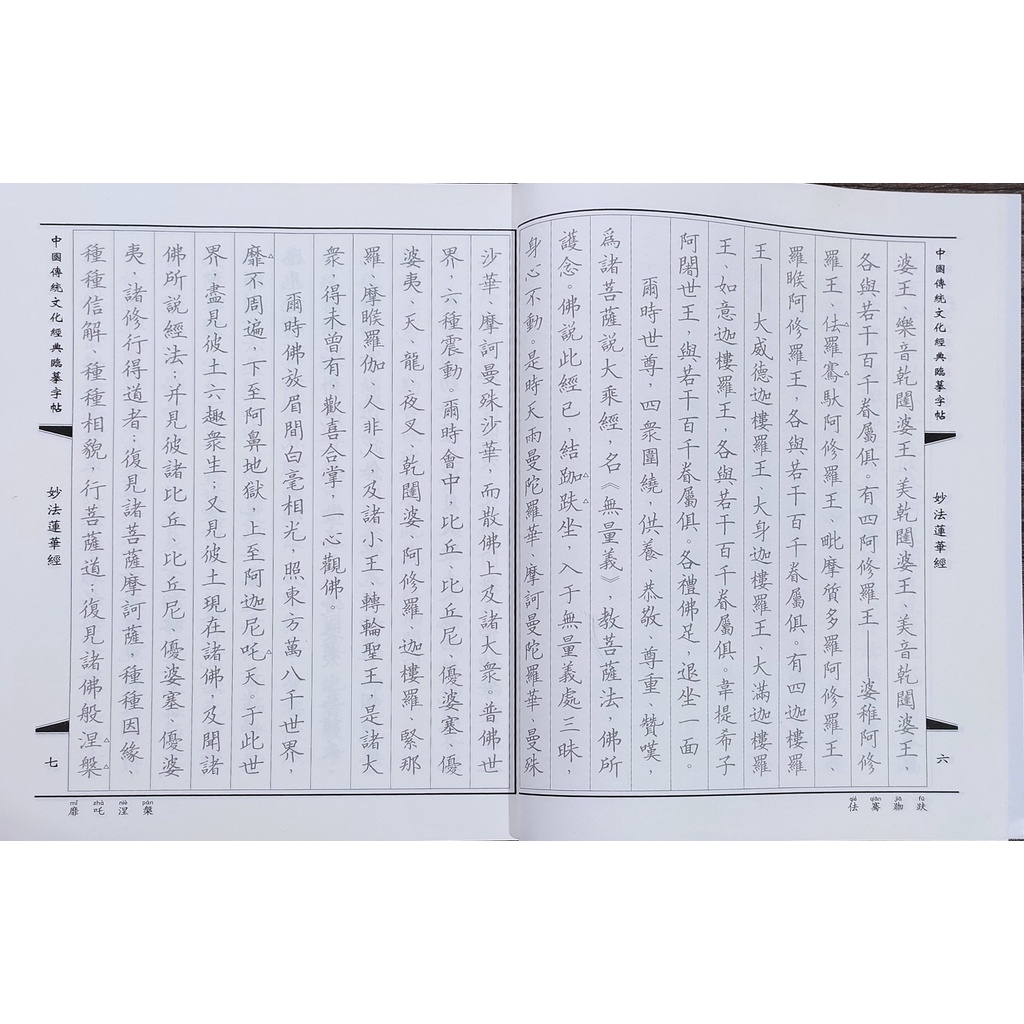 中國傳統文化經典臨摹字帖
妙法蓮華經
六
婆王、樂音乾闥婆王、美乾闥婆王、美音乾闥婆王，
各與若干百千眷屬俱。有四阿修羅王——婆稚阿修
羅王、佉羅騫馱阿修羅王、毗摩質多羅阿修羅王、
羅睺阿修羅王，各與若干百千眷屬俱。有四迦樓羅
王——大威德迦樓羅王、大身迦樓羅王、大滿迦樓羅
王、如意迦樓羅王，各與若干百千眷屬俱。韋提希子
阿闍世王，與若干百千眷屬俱。各禮佛足，退坐一面。
爾時世尊，四衆圍繞，供養、恭敬、尊重、贊嘆，
爲諸菩薩說大乘經，名《無量義》，教菩薩法，佛所
護念。佛說此經已，結跏趺坐，入于無量義處三昧，
身心不動。是時天雨曼陀羅華、摩訶曼陀羅華、曼殊
佉 qié 騫 qiān 跏 jiā 趺 fū
沙華、摩訶曼殊沙華，而散佛上及諸大衆。普佛世
界，六種震動。爾時會中，比丘、比丘尼、優婆塞、優
婆夷、天、龍、夜叉、乾闥婆、阿修羅、迦樓羅、緊那
羅、摩睺羅伽、人非人，及諸小王、轉輪聖王，是諸大
衆，得未曾有，歡喜合掌，一心觀佛。
爾時佛放眉間白毫相光，照東方萬八千世界，
靡不周遍，下至阿鼻地獄，上至阿迦尼吒天。于此世
界，盡見彼土六趣衆生；又見彼土現在諸佛，及聞諸
佛所說經法；并見彼諸比丘、比丘尼、優婆塞、優婆
夷，諸修行得道者；復見諸菩薩摩訶薩，種種因緣、
種種信解、種種相貌，行菩薩道；復見諸佛般涅槃
中國傳統文化經典臨摹字帖
妙法蓮華經
七
靡 mǐ 吒 zhà 涅 niè 槃 pán